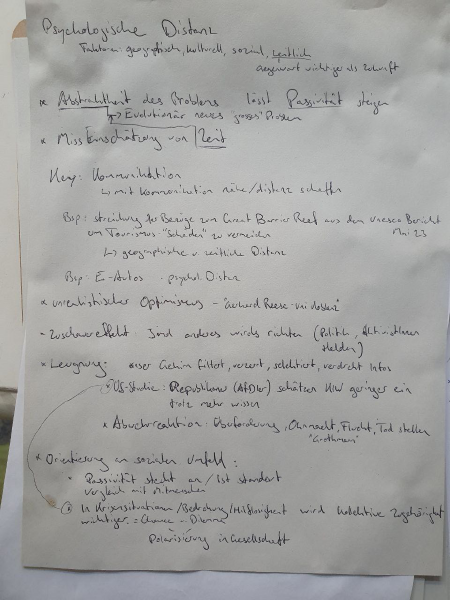 Psychologische Distanz
Faktoren: geographisch, kulturell, sozial, zeitlich
Gegenwart wichtiger als Zukunft
* Abstraktheit des Problems lässt Passivität steigen
↳ Evolutionär neues grosses Problem
* Misseinschätzung von Zeit
Kommunikation
↳ mit Kommunikation nähe/distanz schaffen
Bsp: streichung der Bezüge zum Great Barrier Reef aus dem Unesco Bericht
um Tourismus-"Schäden" zu vermeiden Mai 23
↳ geographische u. zeitliche Distanz
Bsp: E-Autos - psychol. Distanz
* unrealistischer Optimismus - "Gerhard Reese-
- Zuschauereffekt: Jmd anderes wirds richten (Politik, AktivistInnen
Helden)
* Leugnung: unser Gehirn filtert, verzerrt, selektiert, verdreht Infos
US-Studie: Republikaner (AfDler) schätzen geringer ein
trotz mehr wissen
* Abwehrreaktion: Überforderung, Ohnmacht, Flucht, Tod stellen
* Orientierung an sozialen Umfeld:
* Passivität steckt an / Ist standart
Vergleich mit Mitmenschen
In Krisensituationen/Bedrohung/Hilflosigkeit wird kollektive Zugehörigkeit
wichtiger = Chance Dilemma
Polarisierung in Gesellschaft